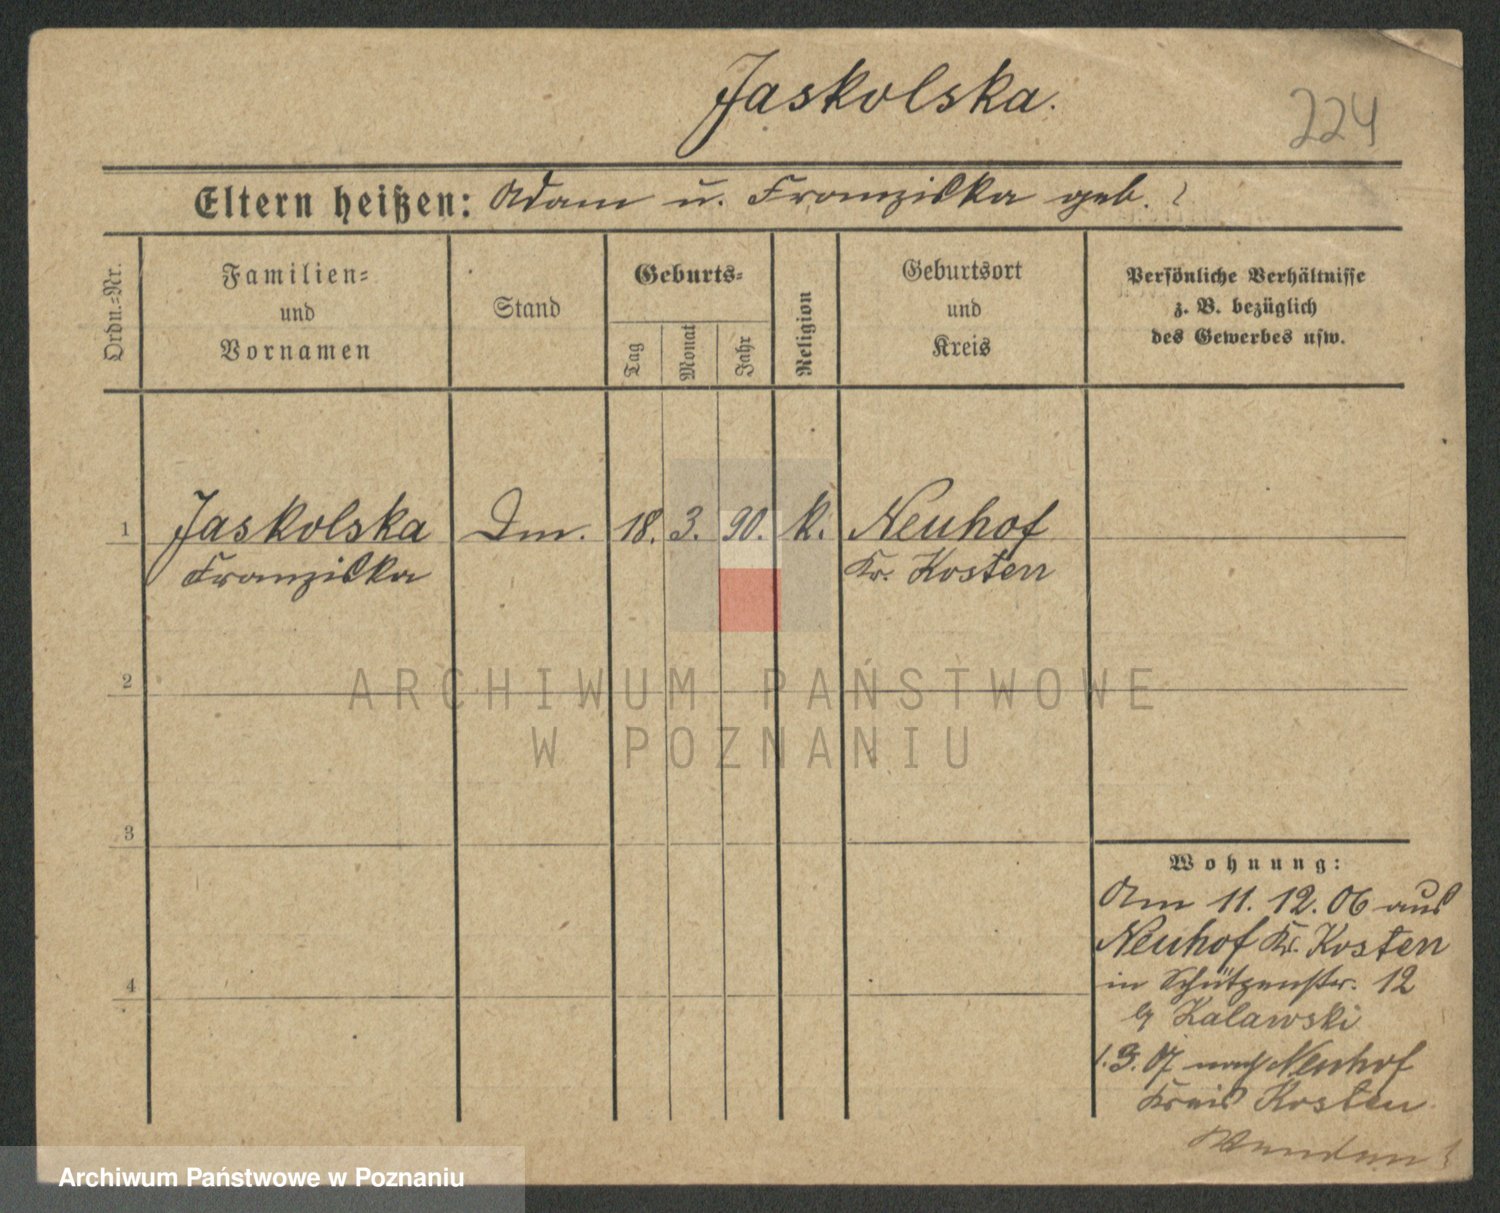 Jaskolska.
224
Eltern heißen: Adam u. Franziska geb. ?
Ordn.=Nr.
Familien=
und
Vornamen
Stand
Geburts=
Tag
Monat
Jahr
Religion
Geburtsort
und
Kreis
Persönliche Verhältnisse
z. B. bezüglich
des Gewerbes usw.
1 Jaskolska Dm. 18. 3. 90. k. Neuhof
Franziska Kr. Kosten
2
ARCHIWUM PAŃSTWOWE
W POZNANIU
3
4
Wohnung:
Am 11. 12. 06 aus
Neuhof Kr. Kosten
in Schützenstr. 12
Kalawski
1. 3. 07 nach Neuhof
Kreis Kosten
Wenden!
Archiwum Państwowe w Poznaniu